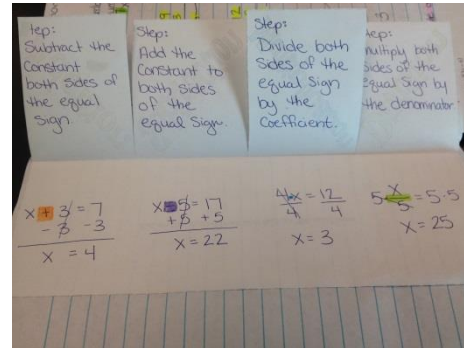 tep:
Subtract the
Constant
both sides of
the equal
sign.
Step:
Add the
Constant to
both sides
of the
equal sign.
Step:
Divide both
sides of the
equal sign
by the
Coefficient.
tep:
multiply both
sides of the
equal sign by
the denominator
x + 3 = 7
- 3 - 3
x = 4
x - 5 = 17
+ 5 + 5
x = 22
4x = 12
4 4
x = 3
5 · x = 5 · 5
5
x = 25